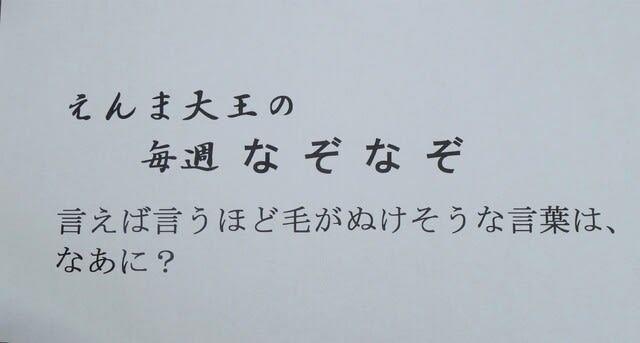 えんま大王の
毎週 なぞなぞ
言えば言うほど毛がぬけそうな言葉は、
なあに？